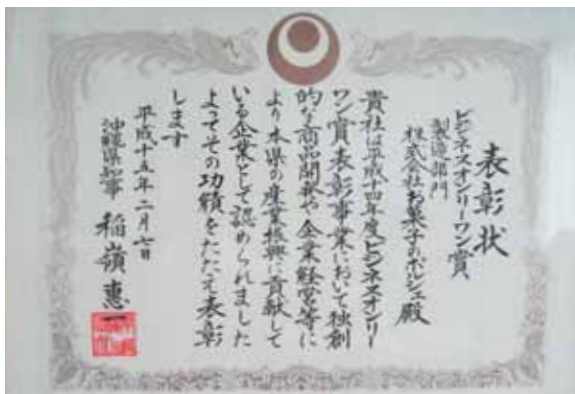 表彰状
ビジネスオンリーワン賞
製造部門
株式会社お菓子のポルシェ殿
貴社は平成十四年度ビジネスオンリー
ワン賞表彰事業において独創
的な商品開発や企業経営等に
より本県の産業振興に貢献して
いる企業として認められました
よってその功績をたたえ表彰
します
平成十五年二月七日
沖縄県知事 稲嶺惠一